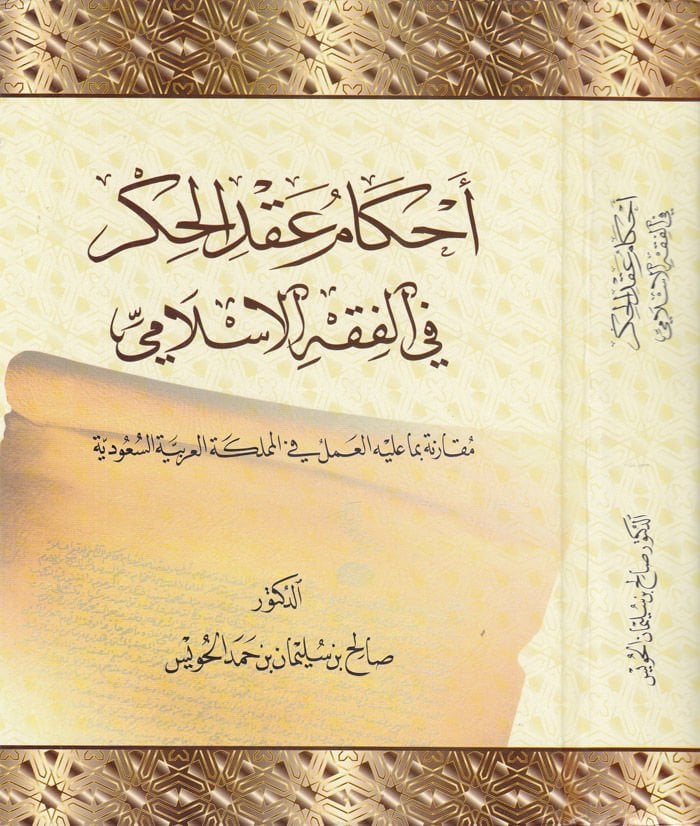 أَحْكَامُ عَقْدِ الحِكْر
في الفِقْهِ الإِسْلَامِيّ
مُقَارَنة بما عَليْه العَمَلُ في المملكَة العَرَبيَّة السُّعُوديَّة
الدكتور
صالح بن سُليْمان بن حَمَد الحُويّس
أَحْكَامُ عَقْدِ الحِكْر
في الفِقْهِ الإِسْلَامِيّ
الدكتور صالح بن سُليْمان الحُويّس